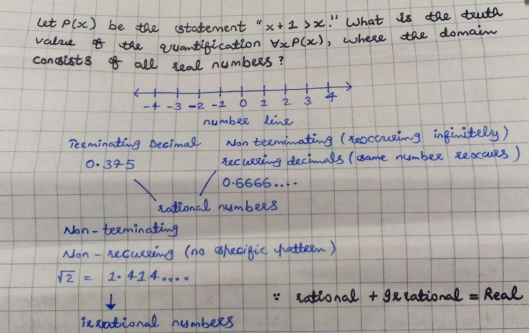 Let P(x) be the statement "x+1 >x." What is the truth
value of the quantification ∀xP(x), where the domain
consists of all real numbers?
-4 -3 -2 -1 0 1 2 3 4
number line
Terminating Decimal
0.375
Non terminating (reoccuring infinitely)
recurring decimals (same number reoccurs)
0.6666....
rational numbers
Non-terminating
Non-recurring (no specific pattern)
√2 = 1.414....
↓
irrational numbers
∵ rational + Irrational = Real